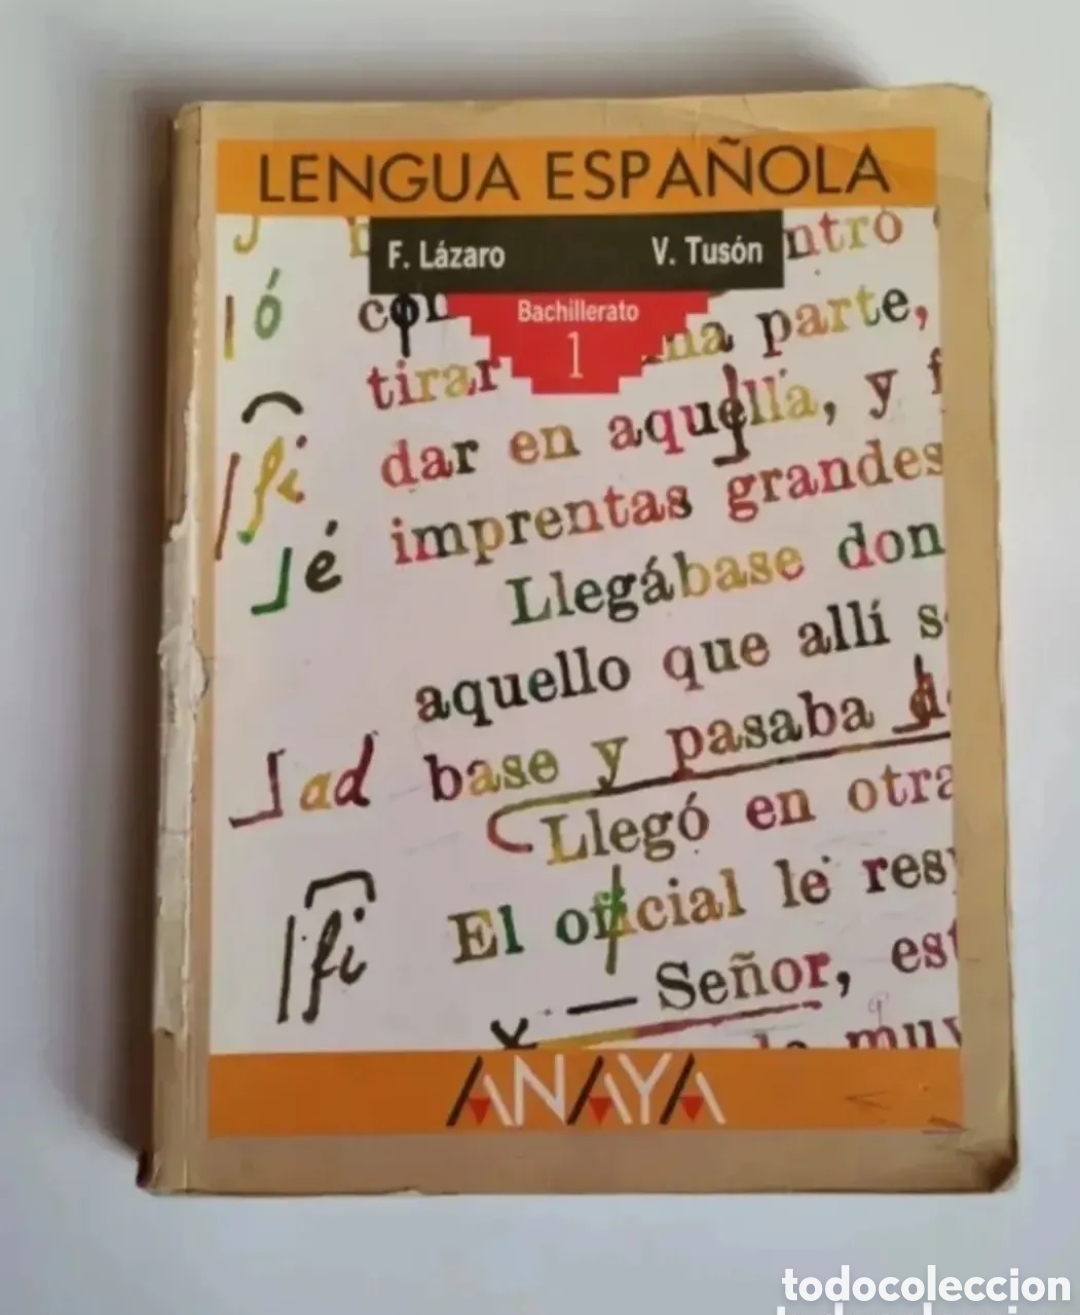 LENGUA ESPAÑOLA
F. Lázaro V. Tusón
Bachillerato
1
ó
tirar na parte,
fi dar en aquella, y
é imprentas grandes
Llegábase don
aquello que allí s
ad base y pasaba d
Llegó en otra
fi El oficial le res
— Señor, est
muy
ANAYA
todocoleccion